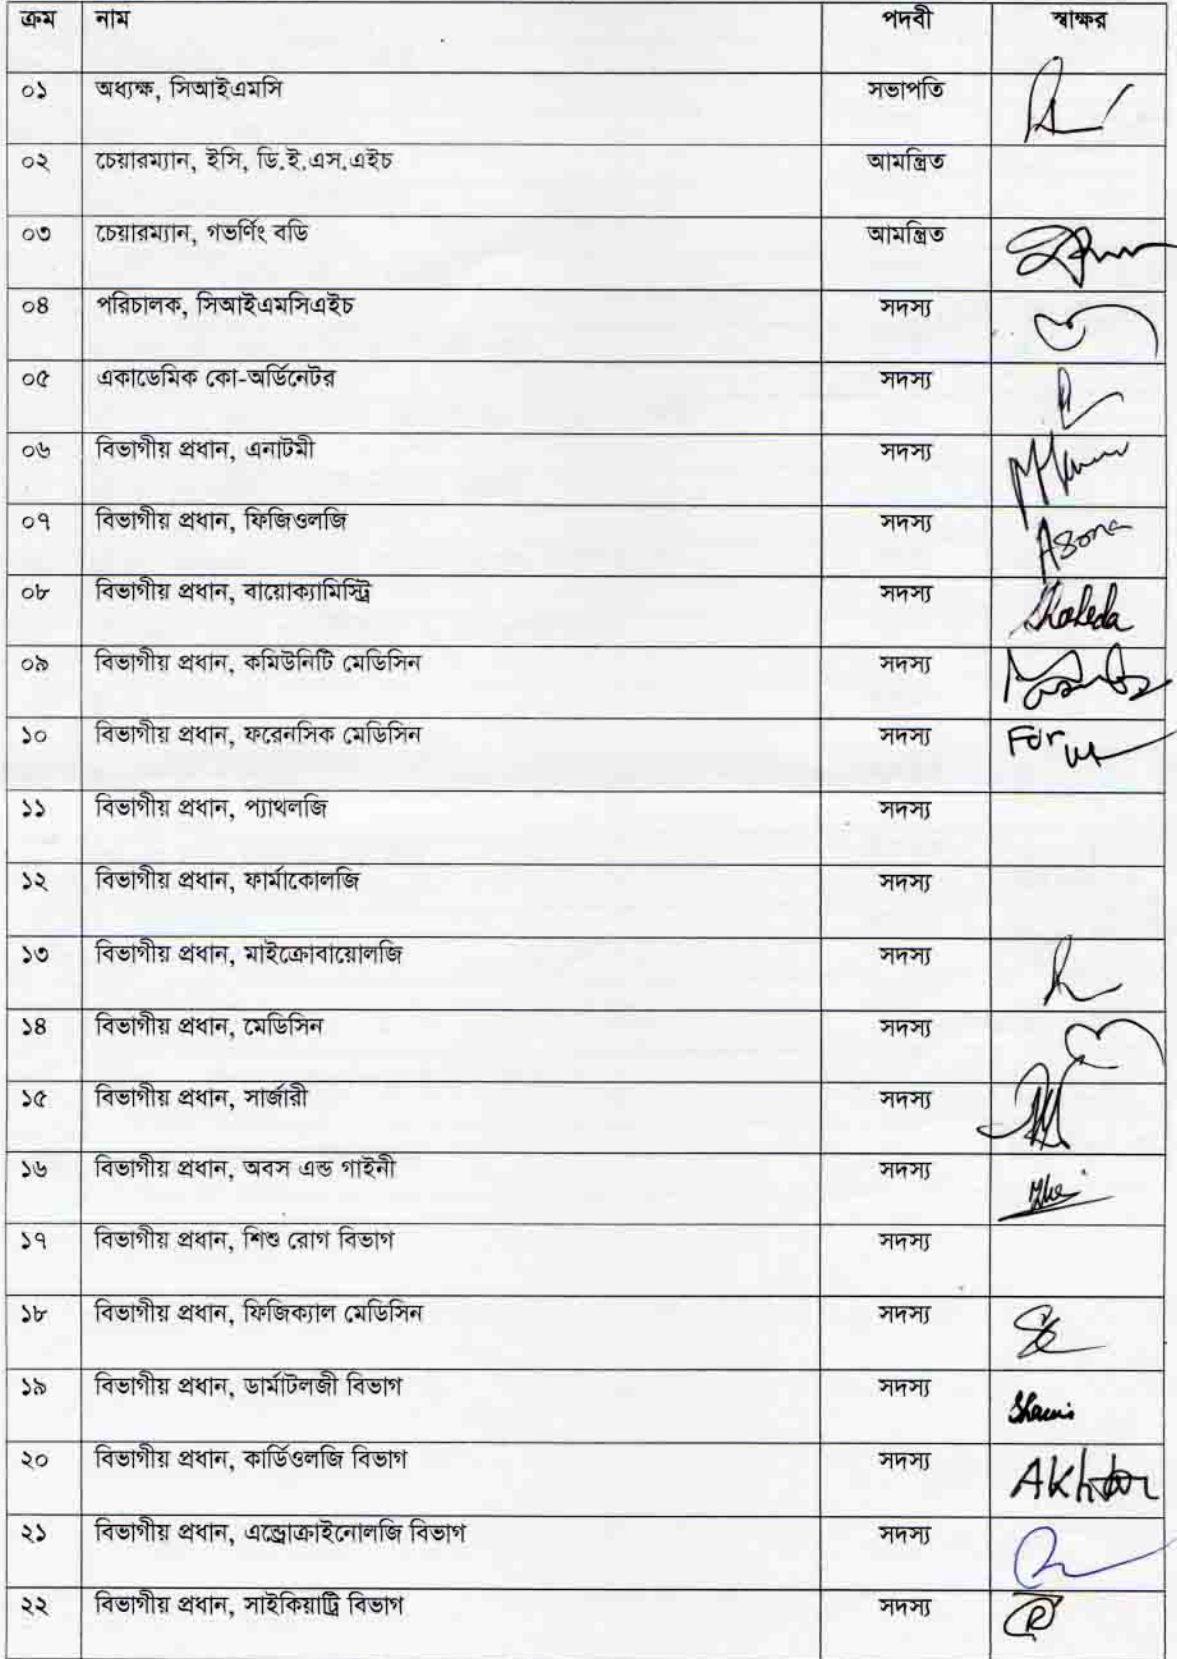 ক্রম নাম পদবী স্বাক্ষর
০১ অধ্যক্ষ, সিআইএমসি সভাপতি
০২ চেয়ারম্যান, ইসি, ডি.ই.এস.এইচ আমন্ত্রিত
০৩ চেয়ারম্যান, গভর্ণিং বডি আমন্ত্রিত
০৪ পরিচালক, সিআইএমসিএইচ সদস্য
০৫ একাডেমিক কো-অর্ডিনেটর সদস্য
০৬ বিভাগীয় প্রধান, এনাটমী সদস্য
০৭ বিভাগীয় প্রধান, ফিজিওলজি সদস্য
০৮ বিভাগীয় প্রধান, বায়োক্যামিস্ট্রি সদস্য
০৯ বিভাগীয় প্রধান, কমিউনিটি মেডিসিন সদস্য
১০ বিভাগীয় প্রধান, ফরেনসিক মেডিসিন সদস্য For
১১ বিভাগীয় প্রধান, প্যাথলজি সদস্য
১২ বিভাগীয় প্রধান, ফার্মাকোলজি সদস্য
১৩ বিভাগীয় প্রধান, মাইক্রোবায়োলজি সদস্য
১৪ বিভাগীয় প্রধান, মেডিসিন সদস্য
১৫ বিভাগীয় প্রধান, সার্জারী সদস্য
১৬ বিভাগীয় প্রধান, অবস এন্ড গাইনী সদস্য
১৭ বিভাগীয় প্রধান, শিশু রোগ বিভাগ সদস্য
১৮ বিভাগীয় প্রধান, ফিজিক্যাল মেডিসিন সদস্য
১৯ বিভাগীয় প্রধান, ডার্মাটলজী বিভাগ সদস্য
২০ বিভাগীয় প্রধান, কার্ডিওলজি বিভাগ সদস্য AKhtar
২১ বিভাগীয় প্রধান, এন্ড্রোক্রাইনোলজি বিভাগ সদস্য
২২ বিভাগীয় প্রধান, সাইকিয়াট্রি বিভাগ সদস্য